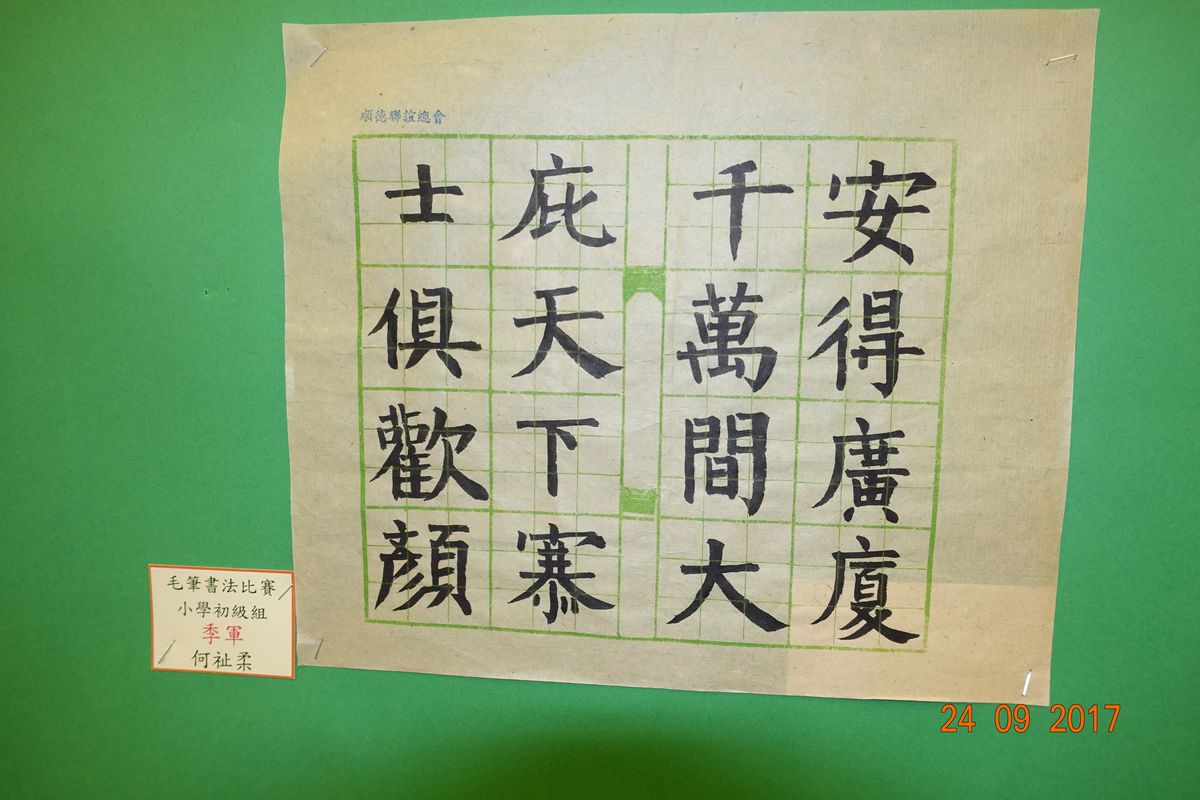 順德聯誼總會
安得廣廈
千萬間大
庇天下寒
士俱歡顏
毛筆書法比賽
小學初級組
季軍
何祉柔
24 09 2017